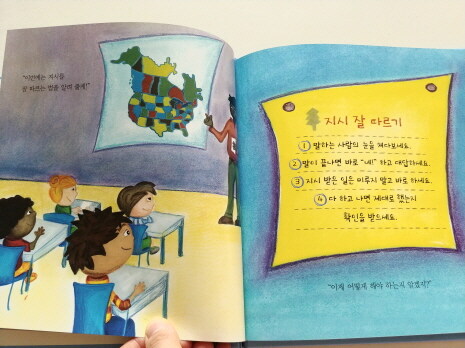 "이번에는 지시를
잘 따르는 법을 알려 줄게!"
지시 잘 따르기
① 말하는 사람의 눈을 쳐다보세요.
② 말이 끝나면 바로 "네!" 하고 대답하세요.
③ 지시 받은 일은 미루지 말고 바로 하세요.
④ 다 하고 나면 제대로 했는지
확인을 받으세요.
"이제 어떻게 해야 하는지 알겠지?"